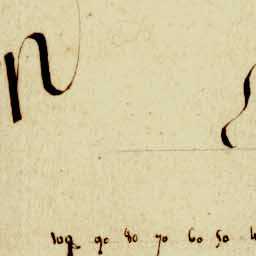 n
100 90 80 70 60 50